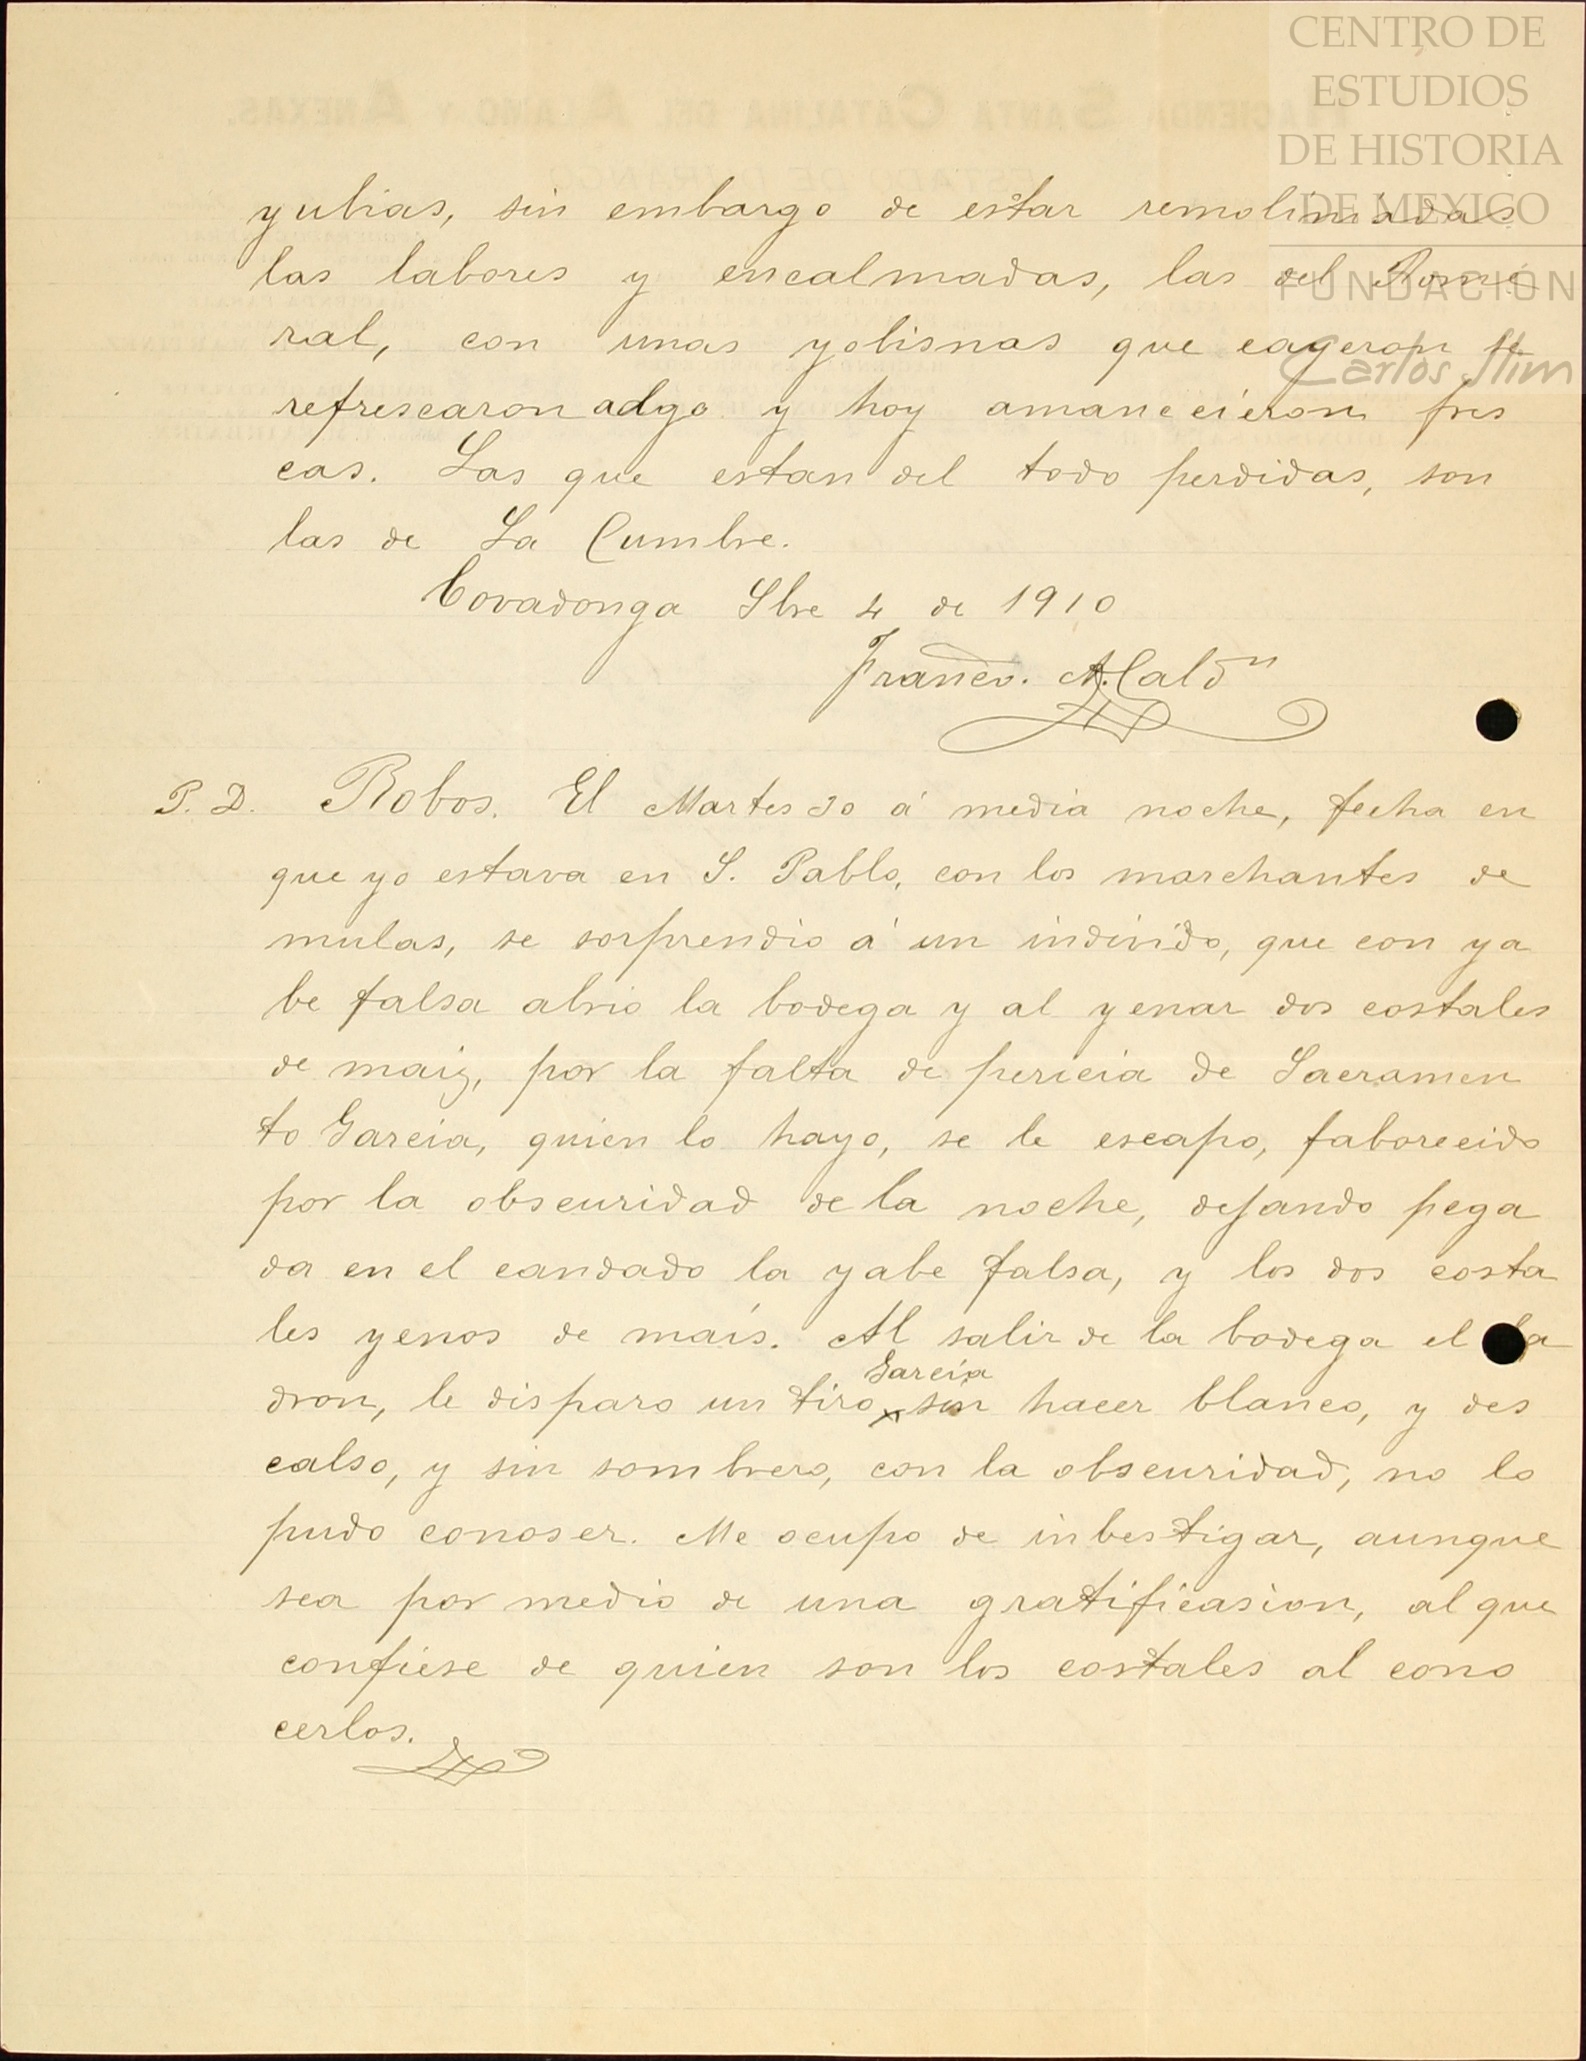 CENTRO DE
ESTUDIOS
DE HISTORIA
DE MEXICO
FUNDACIÓN
Carlos Slim
HACIENDA SANTA CATALINA DEL ALAMO Y ANEXAS.
yubias, sin embargo de estar remolinadas
las labores y encalmadas, las del Rome
ral, con unas yobisnas que cayeron se
refrescaron adgo y hoy amanecieron fres
cas. Las que estan del todo perdidas, son
las de La Cumbre.
Covadonga Sbre 4 de 1910
Franco. A. Caldn
P. D. Robos. El Martes 30 á media noche, fecha en
que yo estava en S. Pablo, con los marchantes de
mulas, se sorprendio á un individo, que con ya
be falsa abrio la bodega y al yenar dos costales
de maiz, por la falta de pericia de Sacramen
to Garcia, quien lo hayo, se le escapo, faborecido
por la obscuridad de la noche, dejando pega
da en el candado la yabe falsa, y los dos costa
les yenos de maís. Al salir de la bodega el la
Garcia
dron, le disparo un tiro sin hacer blanco, y des
calso, y sin sombrero, con la obscuridad, no lo
pudo conoser. Me ocupo de inbestigar, aunque
sea por medio de una gratificasion, al que
confiese de quien son los costales al cono
cerlos.